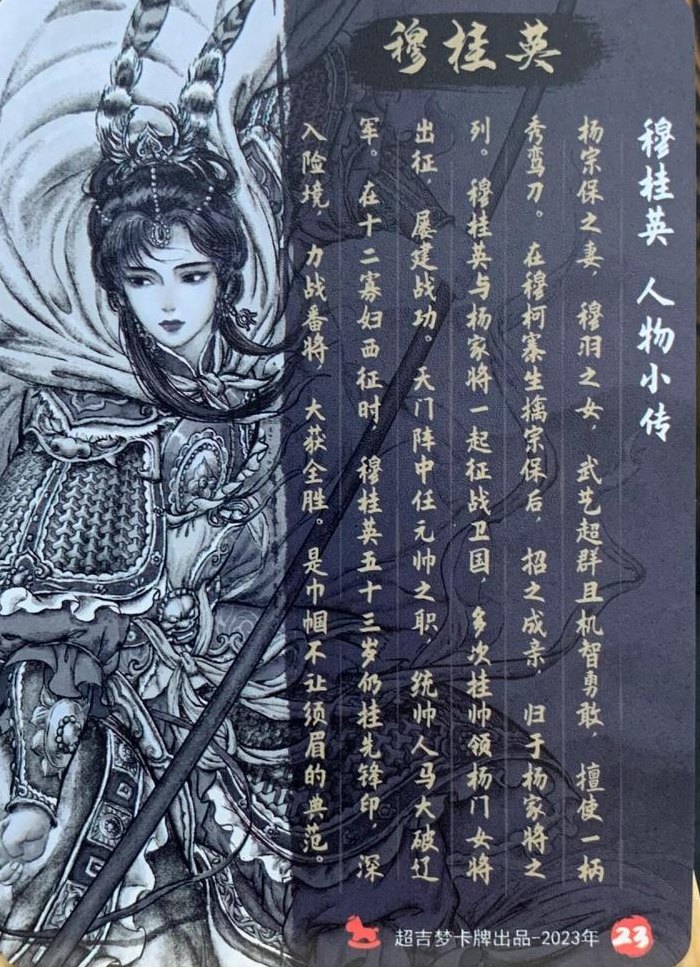 穆桂英
穆桂英 人物小传
杨宗保之妻，穆羽之女，武艺超群且机智勇敢，擅使一柄
秀鸾刀。在穆柯寨生擒宗保后，招之成亲，归于杨家将之
列。穆桂英与杨家将一起征战卫国，多次挂帅领杨门女将
出征，屡建战功。天门阵中任元帅之职，统帅人马大破辽
军。在十二寡妇西征时，穆桂英五十三岁仍挂先锋印，深
入险境，力战番将，大获全胜。是巾帼不让须眉的典范。
超吉梦卡牌出品-2023年
23